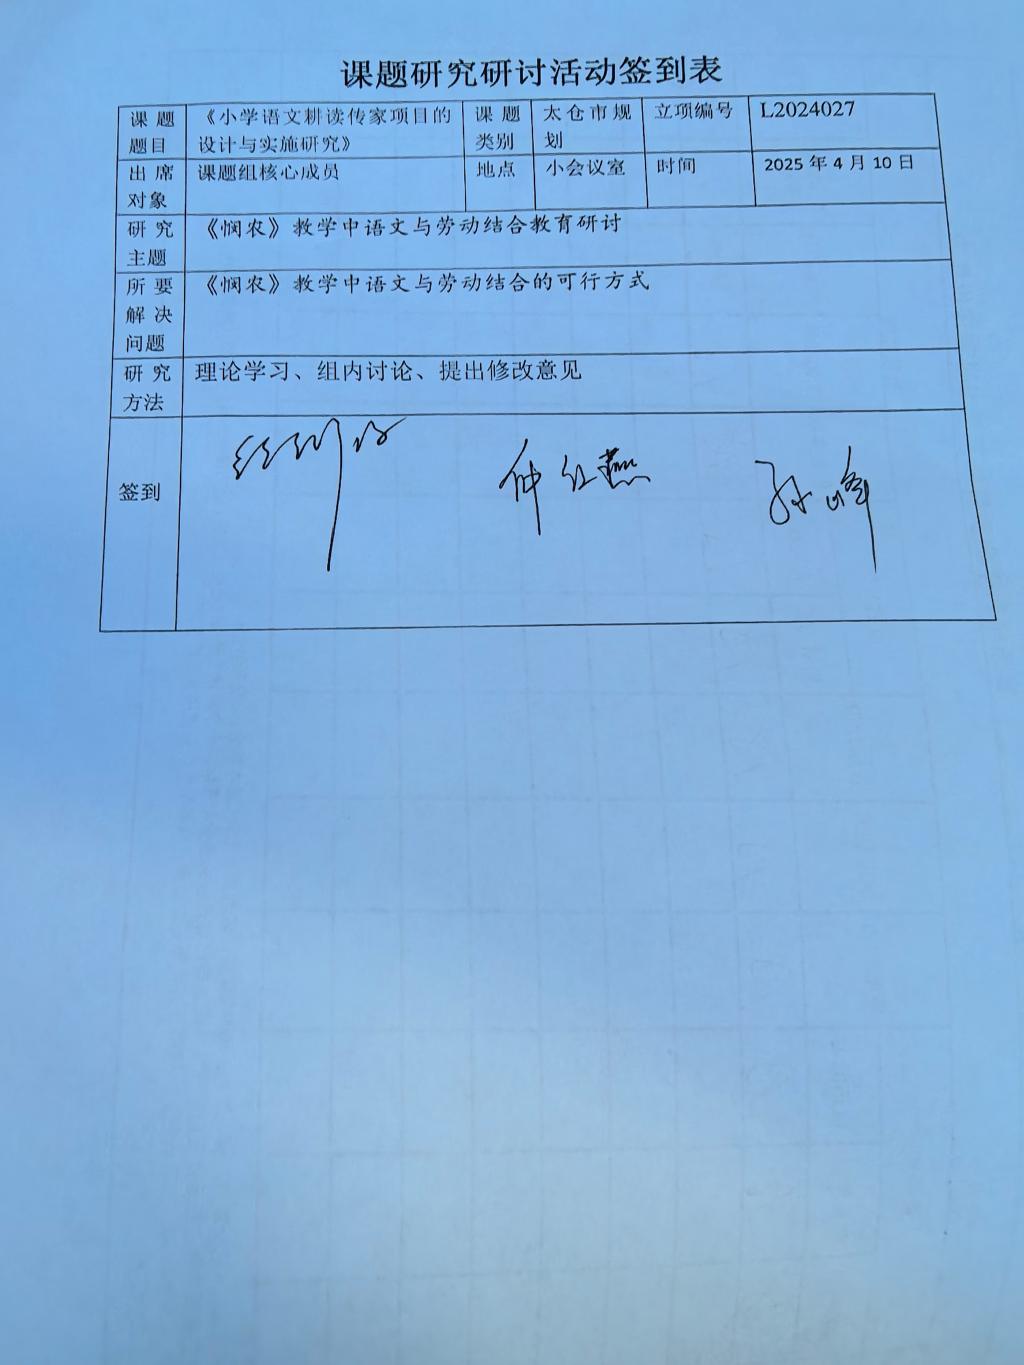 课题研究研讨活动签到表
课题 《小学语文耕读传家项目的 课题 太仓市规 立项编号 L2024027
题目 设计与实施研究》 类别 划
出席 课题组核心成员 地点 小会议室 时间 2025年4月10日
对象
研究 《悯农》教学中语文与劳动结合教育研讨
主题
所要 《悯农》教学中语文与劳动结合的可行方式
解决
问题
研究 理论学习、组内讨论、提出修改意见
方法
签到 仲红燕 孙峰